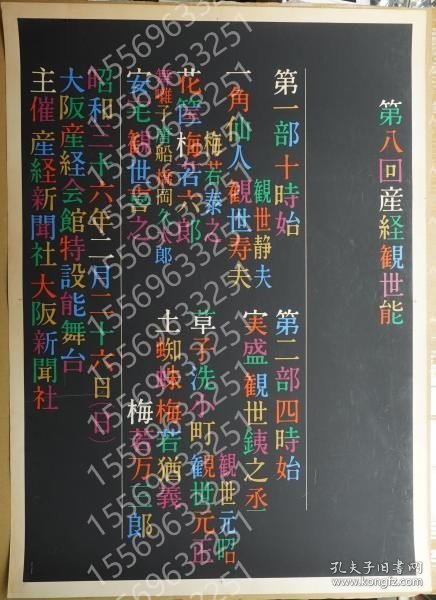 第八回産経観世能
第一部十時始
観世静夫
一角仙人 観世寿夫
梅若泰之
花筐 梅若六郎
舞囃子 唐船 橋岡久太郎
安宅 観世喜之
第二部四時始
実盛 観世銕之丞
観世元昭
草子洗小町 観世元正
土蜘蛛 梅若猶義
梅若万三郎
昭和三十六年二月二十六日(日)
大阪産経会館特設能舞台
主催 産経新聞社 大阪新聞社
15569633251
孔夫子旧书网
www.kongfz.com